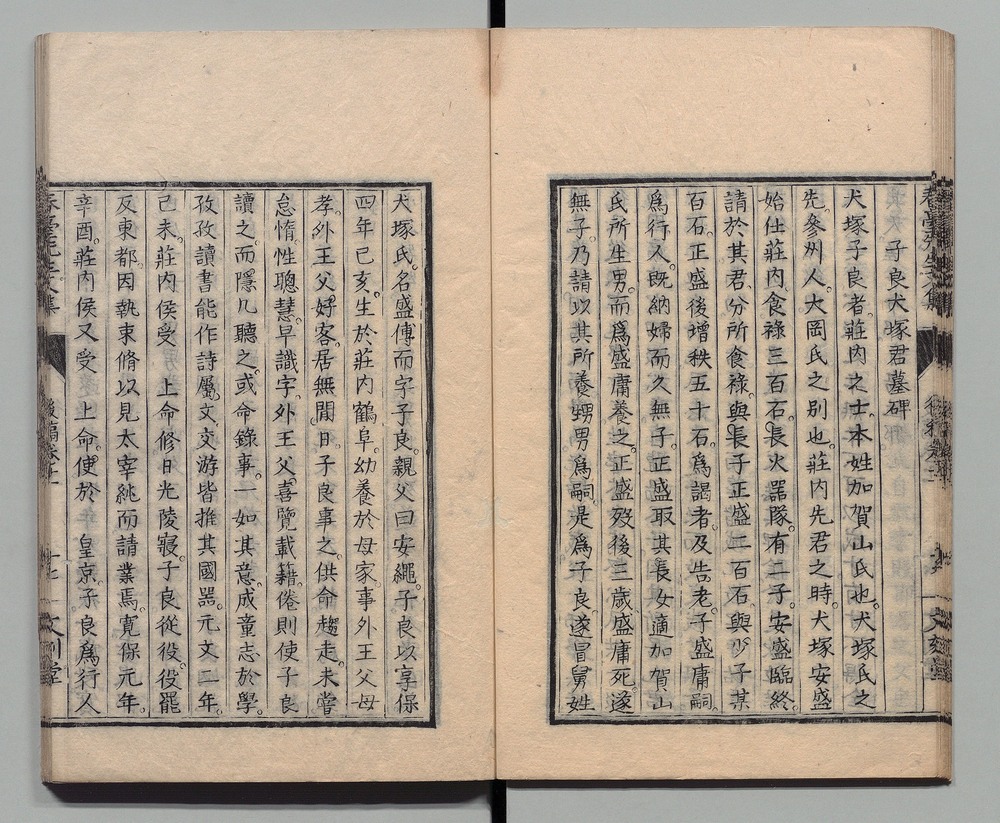 子良犬塚君墓碑
犬塚子良者。莊内之士。本姓加賀山氏也。犬塚氏之
先。參州人。大岡氏之別也。莊内先君之時。犬塚安盛
始仕莊内。食祿三百石。長火器隊。有二子。安盛臨終。
請於其君。分所食祿。與長子正盛二百石。與少子某
百石。正盛後增秩五十石。爲謁者。及告老。子盛庸嗣。
爲行人。既納婦而久無子。正盛取其長女適加賀山
氏所生男。而爲盛庸養之。正盛歿後三歲。盛庸死。遂
無子。乃請以其所養甥男爲嗣。是爲子良。遂冒舅姓
犬塚氏。名盛傅。而字子良。親父曰安繩。子良以享保
四年己亥。生於莊内鶴阜。幼養於母家。事外王父母
孝。外王父好客。居無閒日。子良事之。供命趨走。未嘗
怠惰。性聰慧。早識字。外王父喜覽載籍。倦則使子良
讀之。而隱几聽之。或命錄事。一如其意。成童志於學。
孜孜讀書。能作詩屬文。交游皆推其國器。元文二年。
己未。莊内侯受 上命。修日光陵寢。子良從役。役罷
反東都。因執束脩以見太宰純而請業焉。寬保元年。
辛酉。莊内侯又受 上命。使於 皇京。子良爲行人